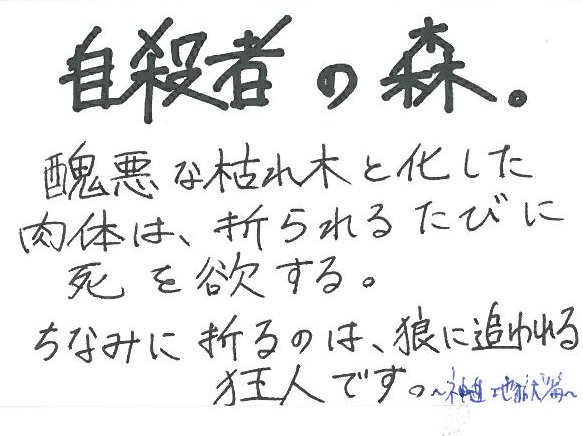 自殺者の森。
醜悪な枯れ木と化した
肉体は、折られるたびに
死を欲する。
ちなみに折るのは、狼に追われる
狂人です。
～神曲 地獄篇～